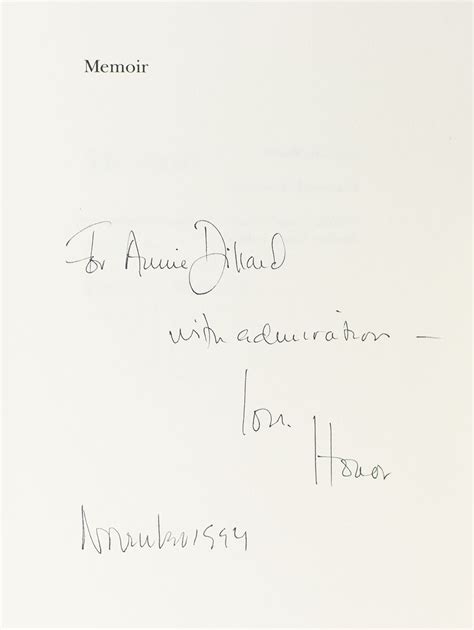 Memoir
For Annie Dillard
with admiration –
Honor
November 1994